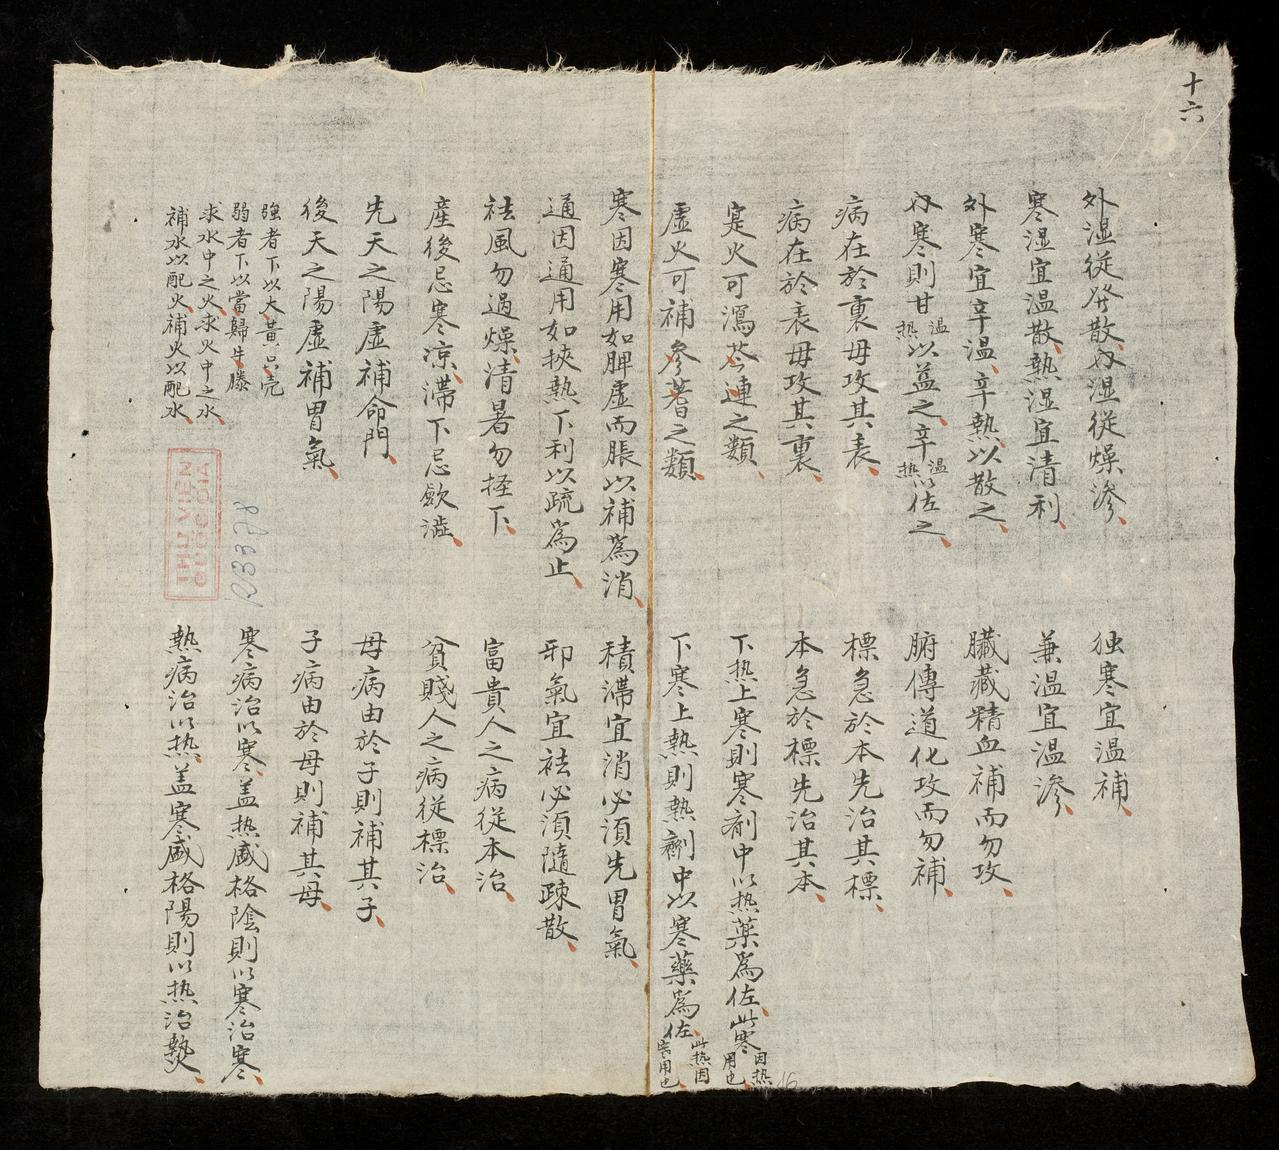 十六
外湿従発散内湿従燥滲
寒湿宜温散熱湿宜清利
外寒宜辛温辛熱以散之
内寒則甘温热以益之辛温热以佐之
病在於裏毋攻其表
病在於表毋攻其裏
寔火可瀉芩連之類
虚火可補參蓍之類
寒因寒用如脾虚而脹以補為消
通因通用如挾熱下利以疏為止
祛風勿過燥清暑勿挃下
産後忌寒凉滯下忌歛澁
先天之陽虚補命門
後天之陽虚補胃氣
強者下以大黄只壳
弱者下以當歸牛膝
求水中之火求火中之水
補水以配火補火以配水
独寒宜温補
兼温宜温滲
臟藏精血補而勿攻
腑傳道化攻而勿補
標急於本先治其標
本急於標先治其本
下热上寒則寒剤中以热薬為佐此寒因热用也
下寒上熱則熱劑中以寒藥為佐此热因寒用也
積滯宜消必湏先胃氣
邪氣宜祛必湏隨疎散
富貴人之病従本治
貧賤人之病従標治
母病由於子則補其子
子病由於母則補其母
寒病治以寒盖热盛格陰則以寒治寒
熱病治以热盖寒盛格陽則以热治熱
THU VIEN
QUOC GIA
R3378
16